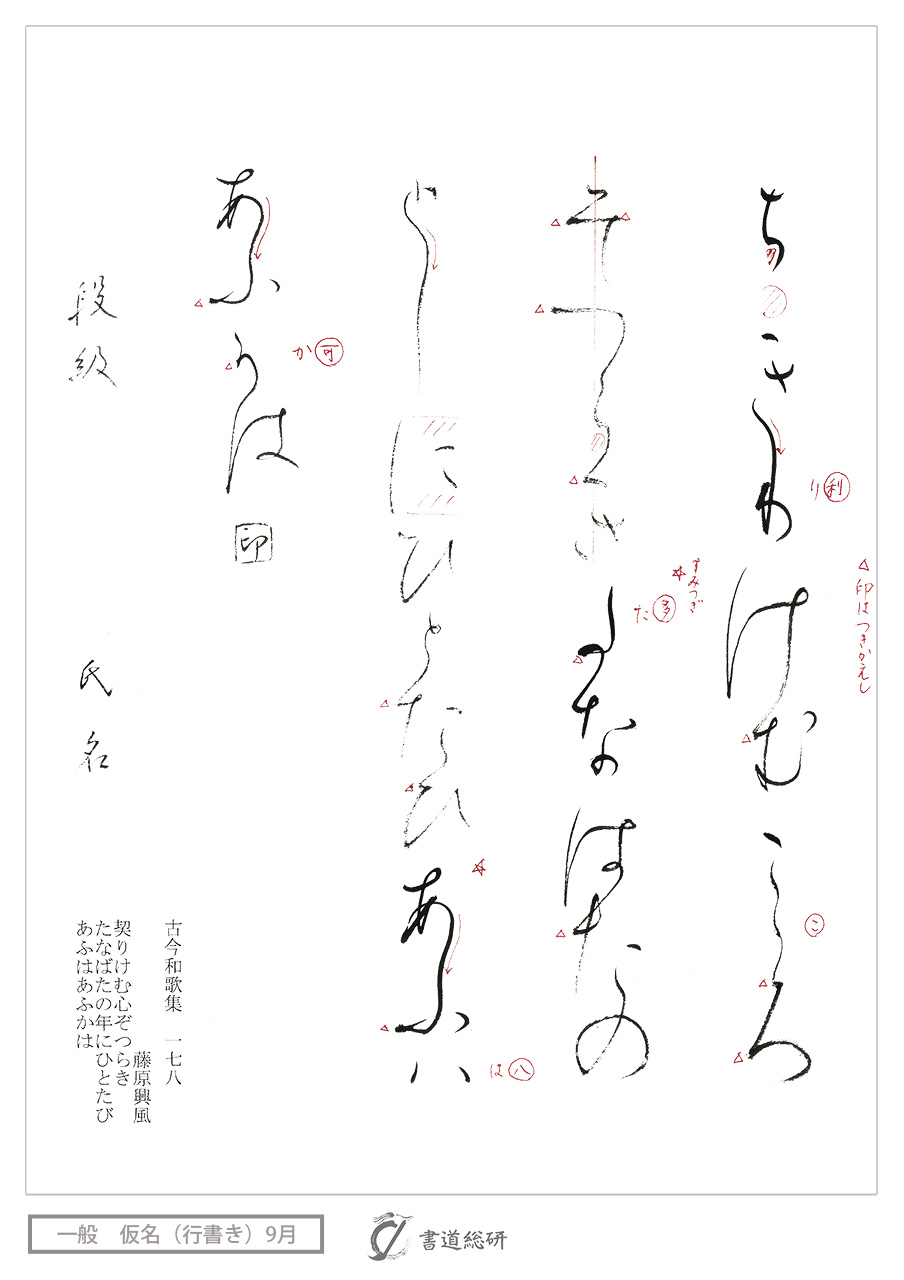 △印はつきかえし
ちきりけむこゝろ
り 利
こ
そつらきたなはたの
すみつぎ
た 多
としにひとたひあふハ
は 八
あふかは
か 可
印
段級 氏名
古今和歌集 一七八
藤原興風
契りけむ心ぞつらき
たなばたの年にひとたび
あふはあふかは
一般 仮名（行書き）9月
書道総研